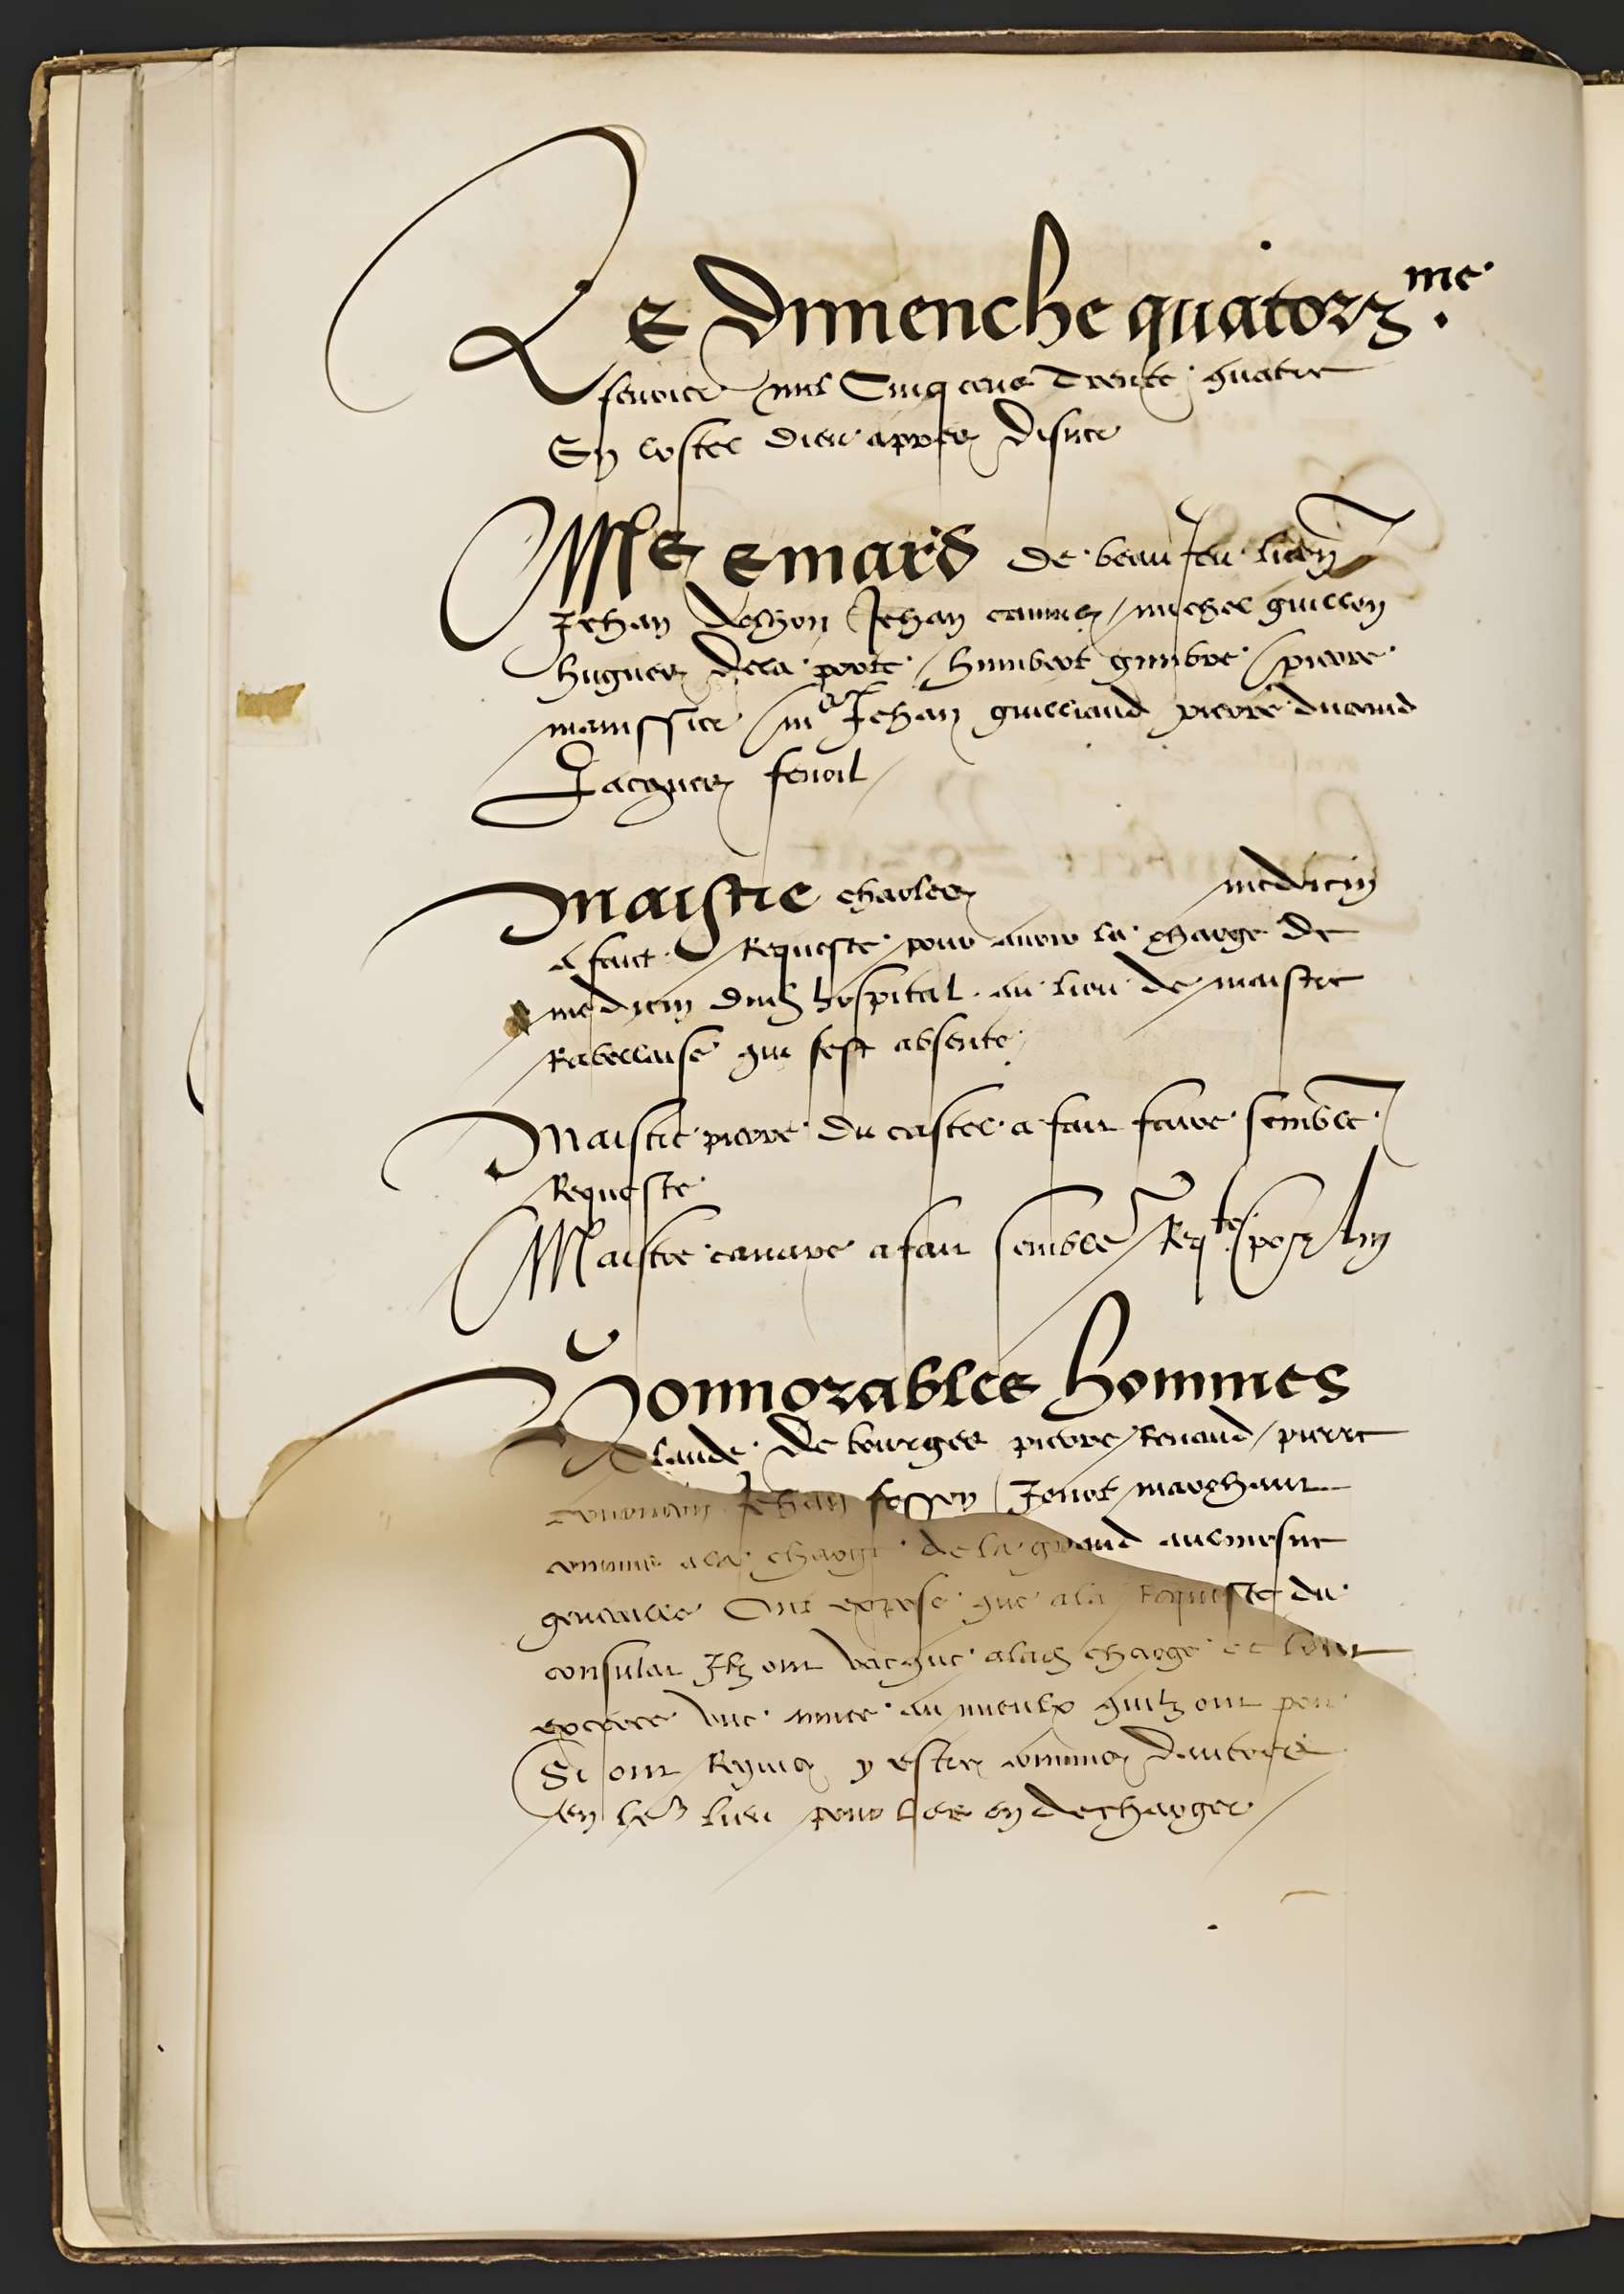 Le Dimenche quatorzme.
fevrier mil Cinq cens Trente quatre
En lostel dieu appres disner
Mes Emard de beaujeu
Jehan de lyon Jehan camus / michel guillon
hugues dela porte / humbert gimbre / pierre
manissier / me Jehan guilliaud pierre durand
Jacques fenoil
Maistre charles medecin
a faict Requeste pour avoir la charge de
medicin dud hospital au lieu de maistre
Rabellaise qui sest absente
Maistre pierre du castel a fait faire semble
Requeste
Maistre canape a fait semble Reqte pour luy
Honnorables hommes
Claude de bourges pierre Renaud / pierre
Jehan Jonot marchant
commis ala charge de la grand aulmosne
generalle Ont expose que ala Requeste du
consulat Ilz ont vacque alad charge et
exercee une annee au mieulx quilz ont peu
Si ont Requis y estre commis dautres
en leur lieu pour les en descharger